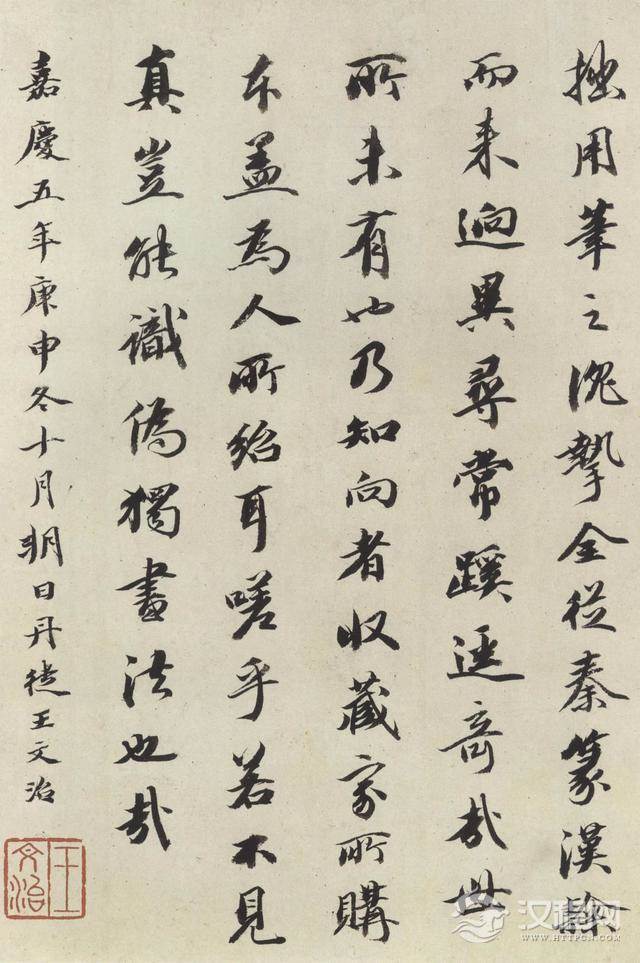 拙用筆之沈摯全從秦篆漢隸
而来逈異尋常蹊逕奇哉世
所未有也乃知向者收藏家所購
本盖為人所紿耳嗟乎若不見
真豈能識偽獨書法也哉
嘉慶五年庚申冬十月朔日丹徒王文治
王文治
汉程网
WWW.HTTPCN.COM